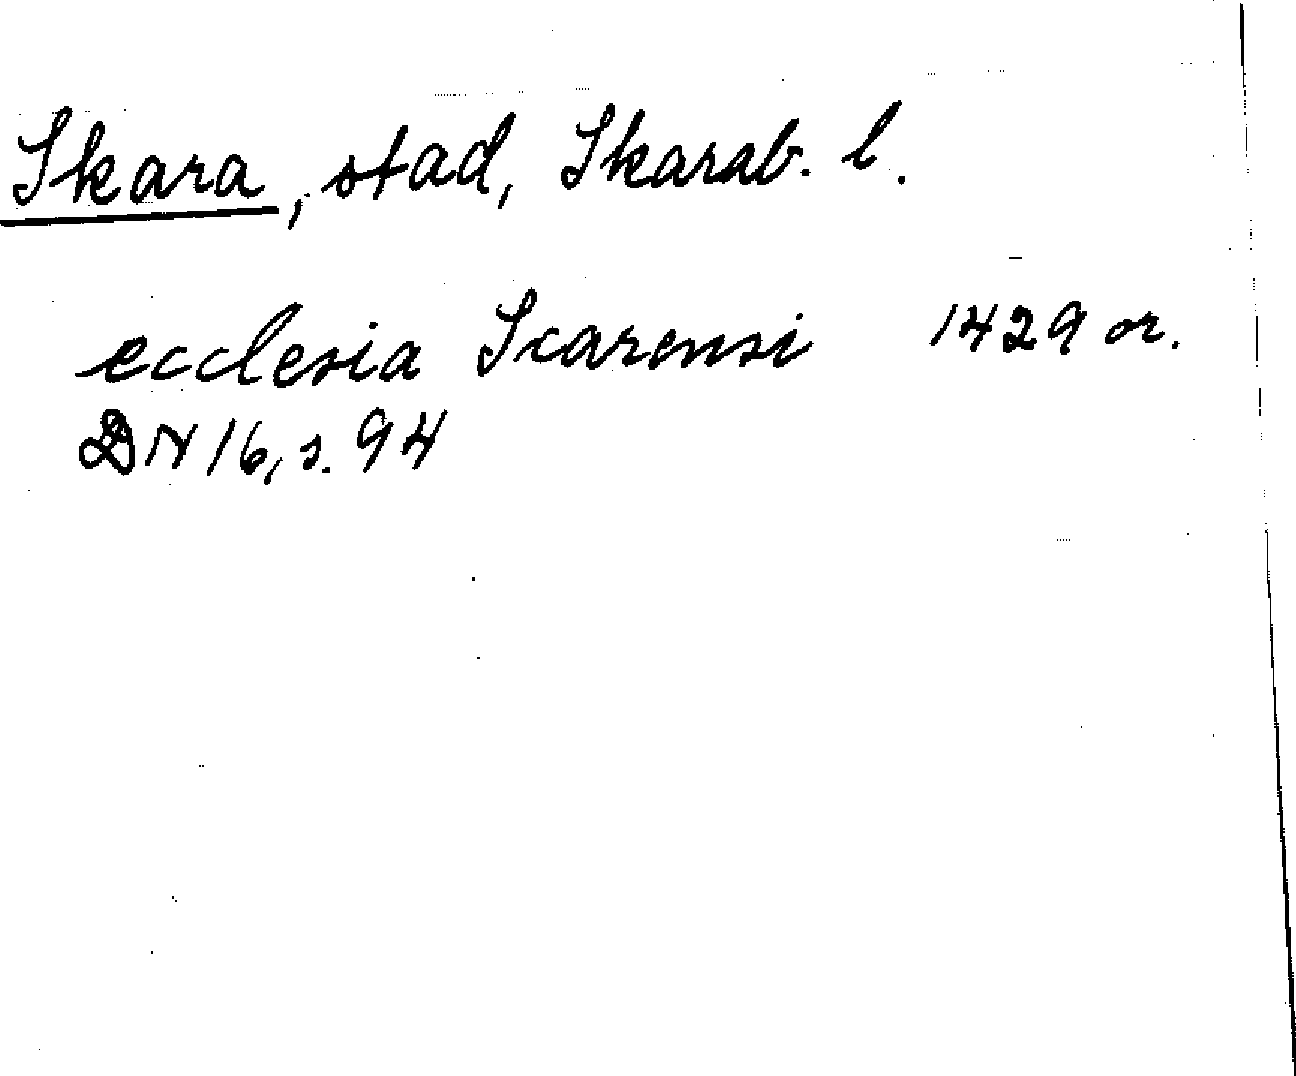 Skara, stad, Skarab. l.
ecclesia Scarensi 1429 or.
DN 16, s. 94